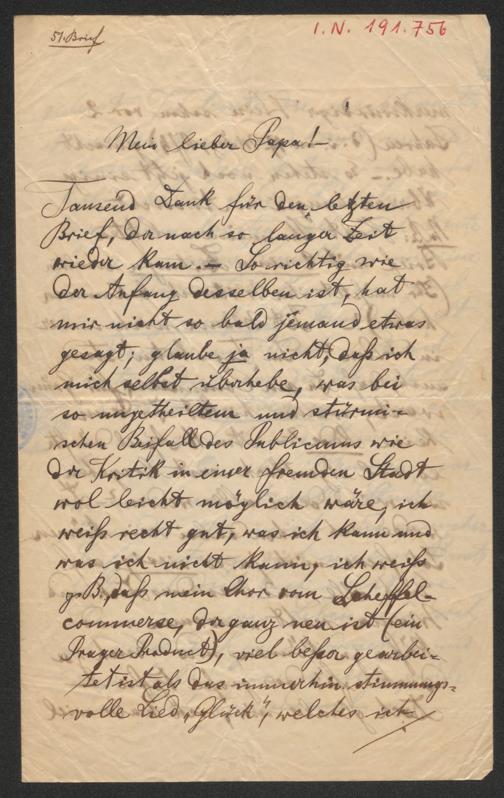 51. Brief
I. N. 191.756
Mein lieber Papa! –
Tausend Dank für den letzten
Brief, der nach so langer Zeit
wieder kam. – So richtig wie
der Anfang desselben ist, hat
mir nicht so bald jemand etwas
gesagt; glaube ja nicht, daß ich
mich selbst überhebe, was bei
so ungetheiltem und stürmi-
schen Beifall des Publicums wie
der Kritik in einer fremden Stadt
wol leicht möglich wäre, ich
weiß recht gut, was ich kann und
was ich nicht kann, ich weiß
z. B., daß mein Chor vom Scheffel-
commerse, der ganz neu ist (ein
Prager Product), viel beßer gearbei-
tet ist als das immerhin stimmungs-
volle Lied „Glück", welches ich